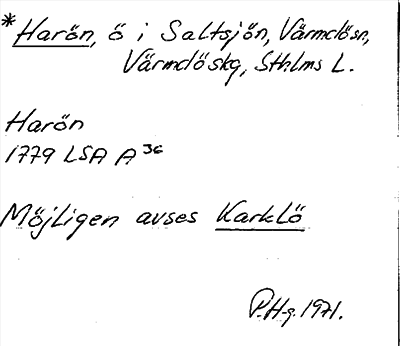 *Harön, ö i Saltsjön, Värmdösn,
Värmdöskg, Sthlms L.
Harön
1779 LSA A 36
Möjligen avses Karklö
P.H-g. 1971.